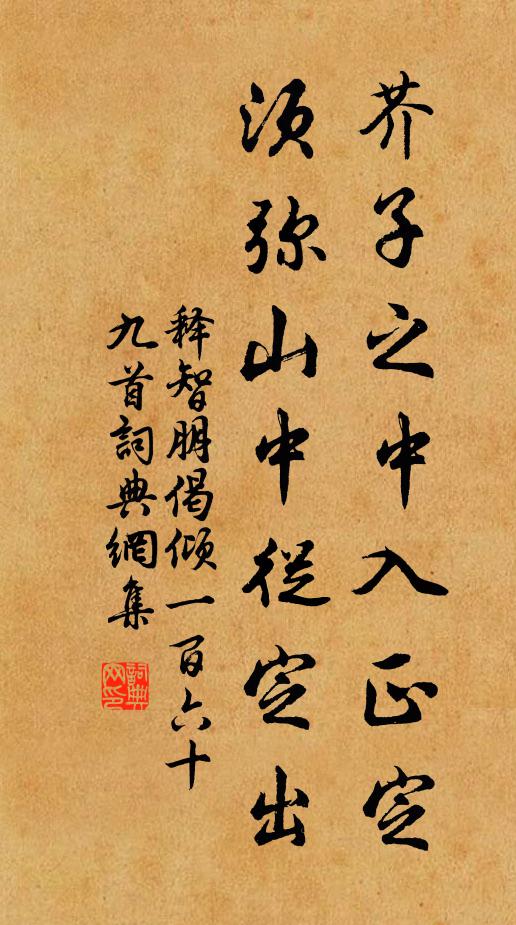 芥子之中入正定
须弥山中從定出
释智朋偈倾一百六十
九首詞典網集
詞典网印